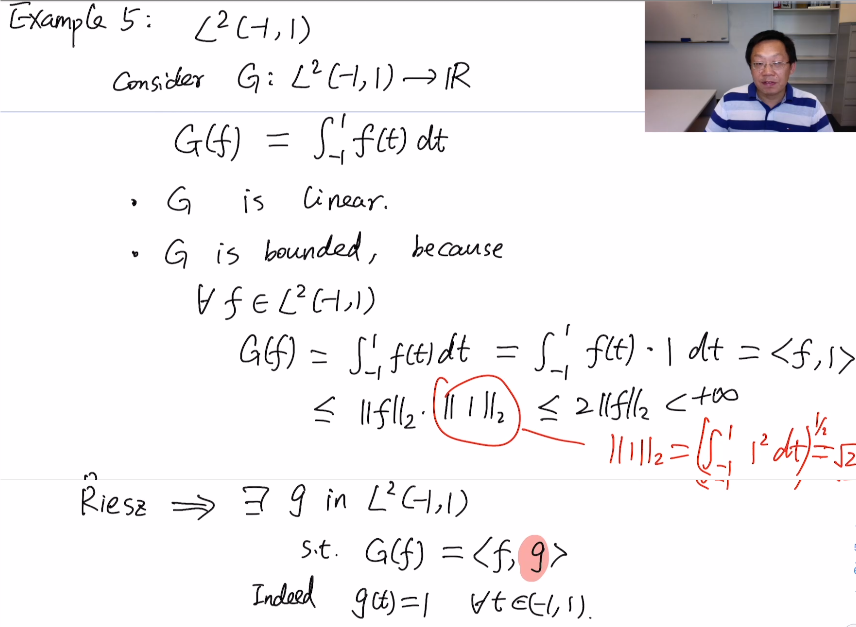 Example 5: L²(-1,1)
Consider G: L²(-1,1) → ℝ
G(f) = ∫₋₁¹ f(t) dt
· G is linear.
· G is bounded, because
∀ f ∈ L²(-1,1)
G(f) = ∫₋₁¹ f(t) dt = ∫₋₁¹ f(t) · 1 dt = <f, 1>
≤ ||f||₂ · || 1 ||₂ ≤ 2||f||₂ < +∞
||1||₂ = (∫₋₁¹ 1² dt)^{1/2} = √2
Riesz ⟹ ∃ g in L²(-1,1)
s.t. G(f) = <f, g>
Indeed g(t)=1 ∀t∈(-1,1).